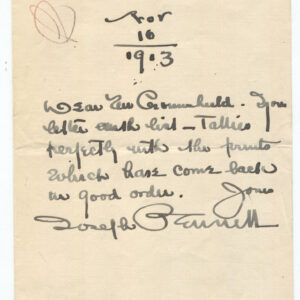 Nov
16
1913
Dear Mr Crowninshield. Your
letter with list - Tallies
perfectly with the prints
which have come back
in good order. Yours
Joseph Pennell